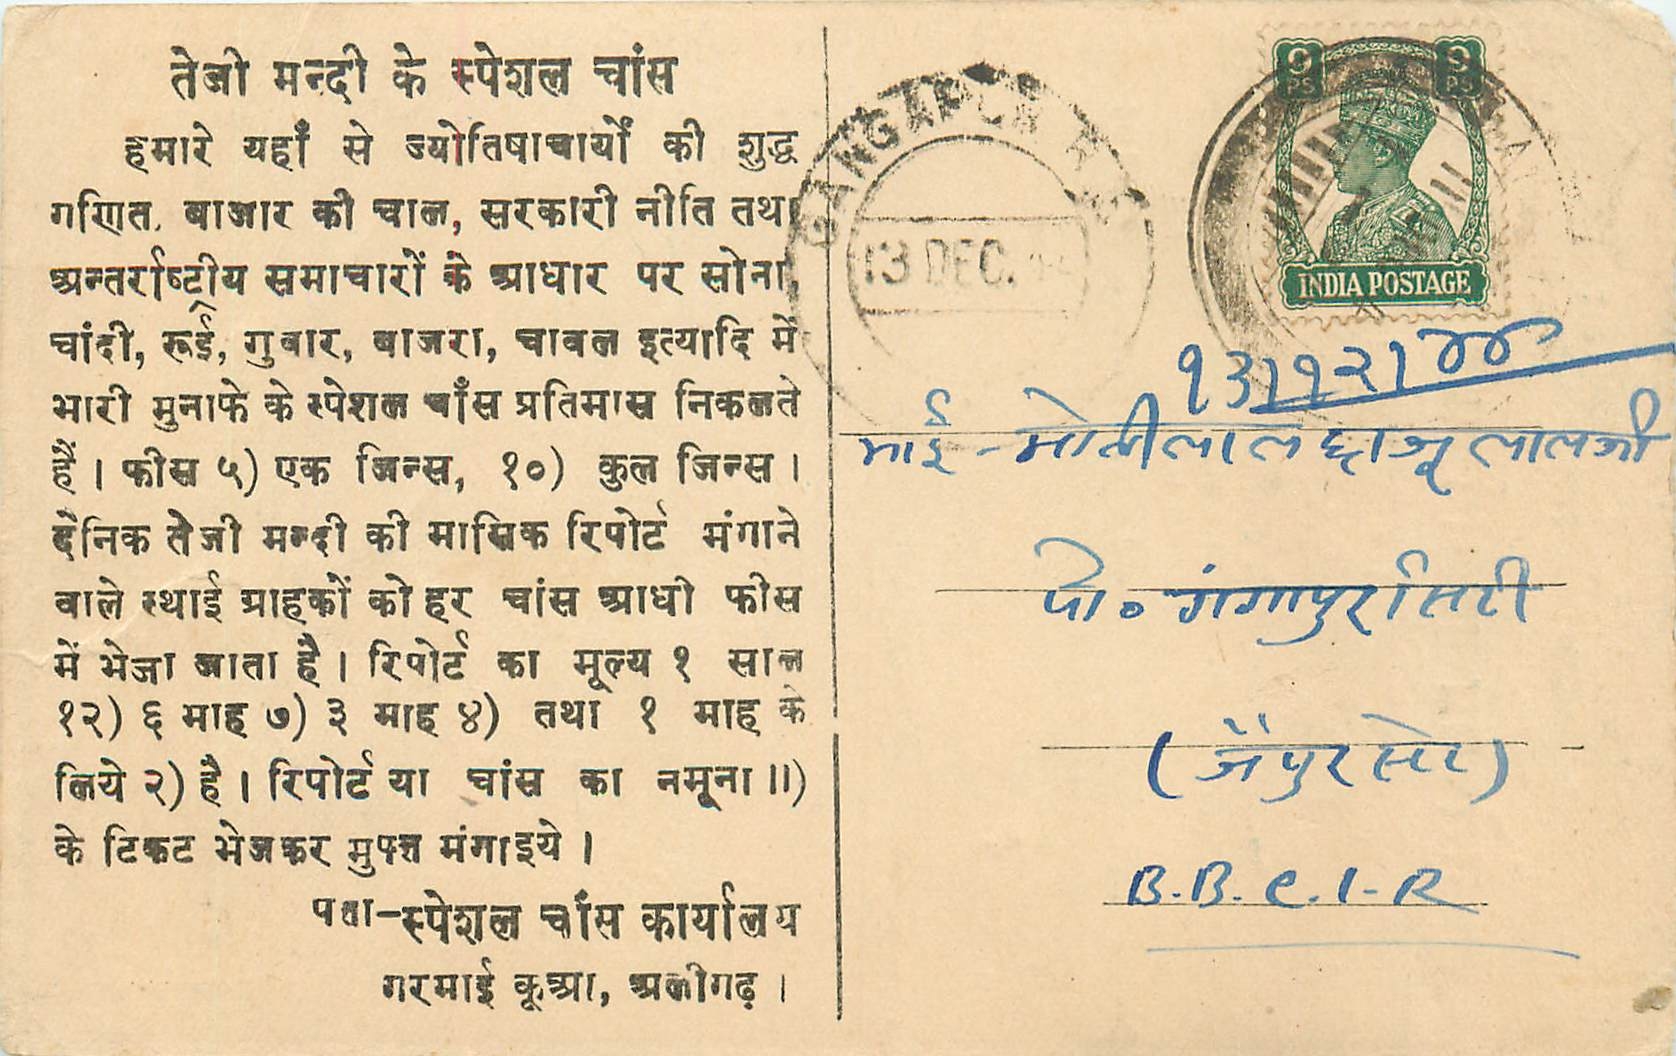 तेजी मन्दी के स्पेशल चांस
हमारे यहाँ से ज्योतिषाचार्यों की शुद्ध
गणित, बाजार की चाल, सरकारी नीति तथा
अन्तर्राष्ट्रीय समाचारों के आधार पर सोना,
चांदी, रूई, गुवार, बाजरा, चावल इत्यादि में
भारी मुनाफे के स्पेशल चाँस प्रतिमास निकलते
हैं। फीस ५) एक जिन्स, १०) कुल जिन्स।
दैनिक तेजी मन्दी की मासिक रिपोर्ट मंगाने
वाले स्थाई ग्राहकों को हर चांस आधी फीस
में भेजा जाता है। रिपोर्ट का मूल्य १ साल
१२) ६ माह ७) ३ माह ४) तथा १ माह के
लिये २) है। रिपोर्ट या चांस का नमूना ॥)
के टिकट भेजकर मुफ्त मंगाइये।
पता-स्पेशल चांस कार्यालय
गरमाई कूआ, अलीगढ़।
GANGAPUR
13 DEC.
9 PS 9 PS
INDIA POSTAGE
१३।१२।४४
भाई - मोतीलाल छाजूलालजी
पो० गंगापुर सिटी
(जैपुर स्टेट)
B.B.C.I-R